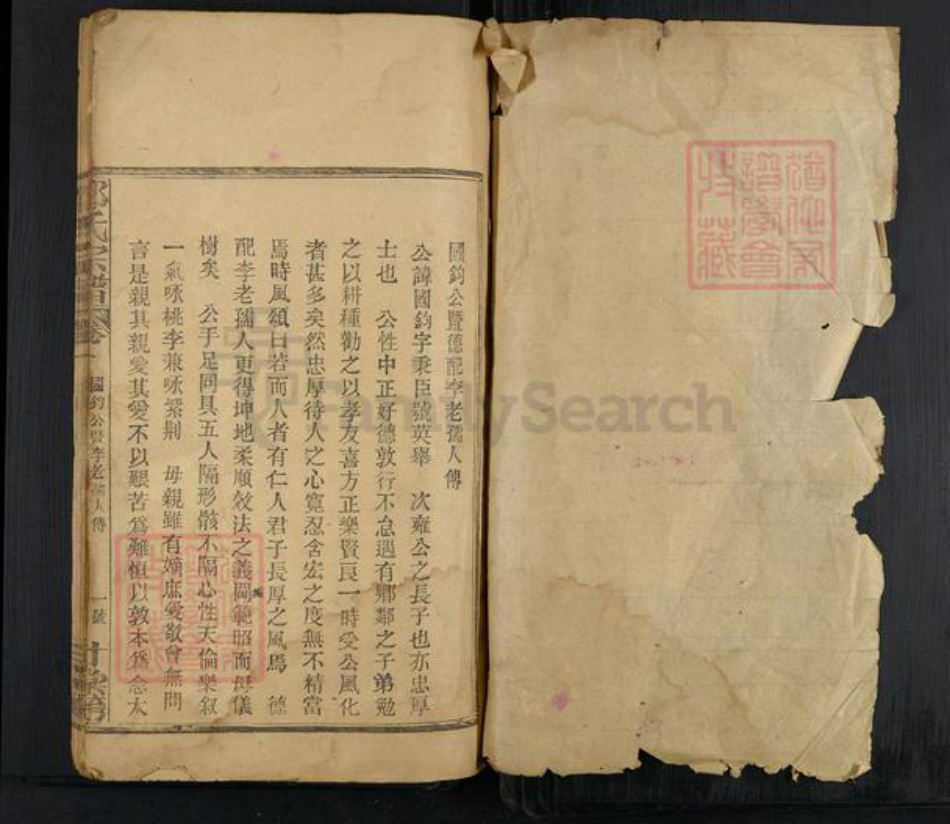 國鈞公暨德配李老孺人傳
公諱國鈞字秉臣號英舉 次雍公之長子也亦忠厚
士也 公性中正好德敦行不怠遇有鄉鄰之子弟勉
之以耕種勸之以孝友喜方正樂賢良一時受公風化
者甚多矣然忠厚待人之心寬忍含宏之度無不精當
焉時風頌曰若而人者有仁人君子長厚之風焉 德
配李老孺人更得坤地柔順效法之義閫範昭而母儀
樹矣 公手足同具五人隔形骸不隔心性天倫樂叙
一氣咏桃李兼咏紫荆 母親雖有嫡庶愛敬會無間
言是親其親愛其愛不以艱苦爲難恒以敦本爲念太
氏宗譜 卷一
國鈞公暨李老孺人傳
一號
譜學會
收藏
FamilySearch